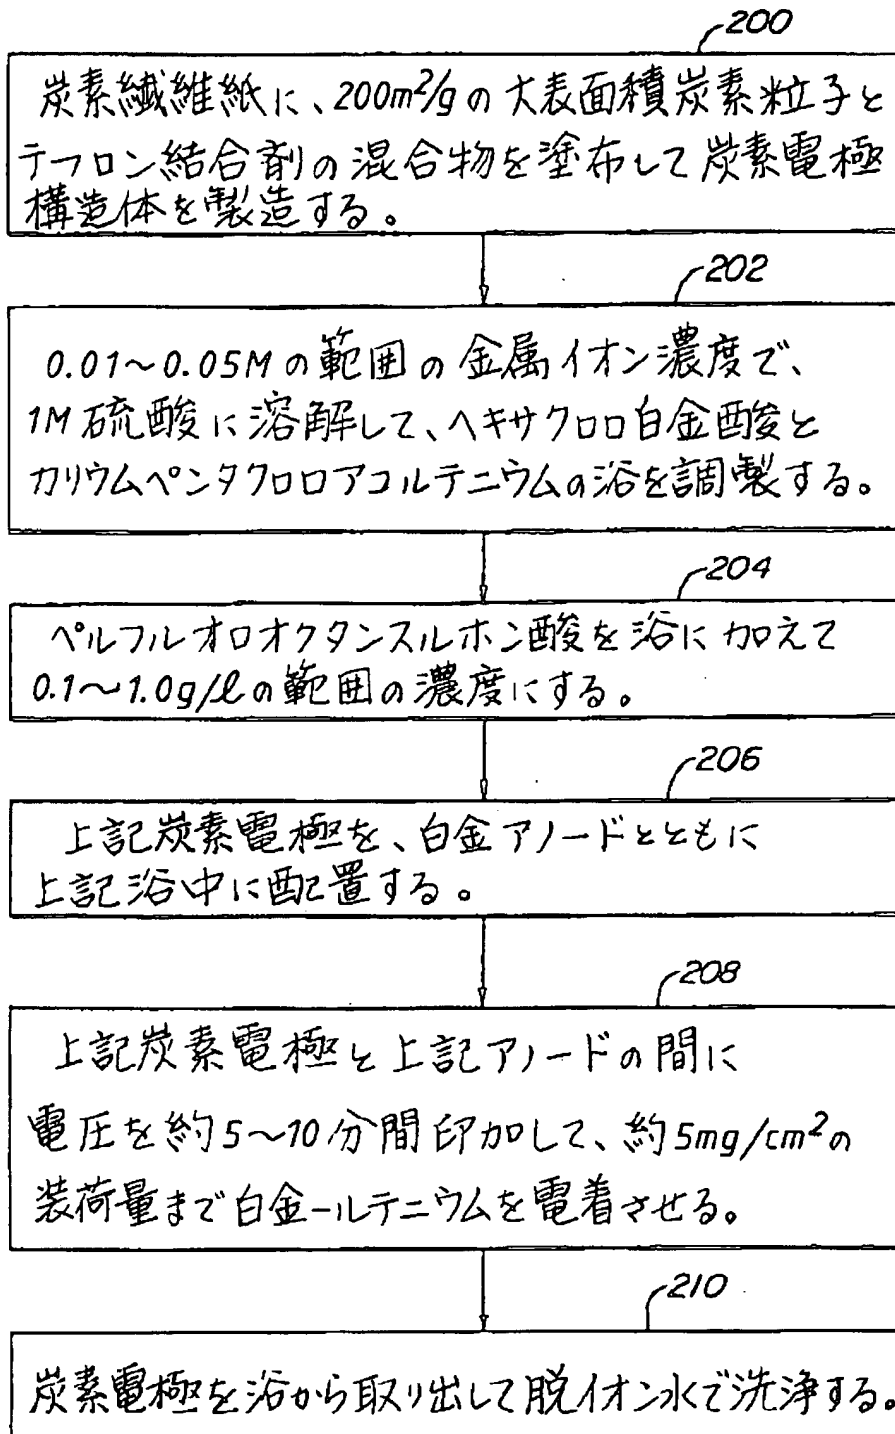 200
炭素繊維紙に、200m²/gの大表面積炭素粒子と
テフロン結合剤の混合物を塗布して炭素電極
構造体を製造する。
202
0.01~0.05Mの範囲の金属イオン濃度で、
1M硫酸に溶解して、ヘキサクロロ白金酸と
カリウムペンタクロロアコルテニウムの浴を調製する。
204
ペルフルオロオクタンスルホン酸を浴に加えて
0.1~1.0g/ℓの範囲の濃度にする。
206
上記炭素電極を、白金アノードとともに
上記浴中に配置する。
208
上記炭素電極と上記アノードの間に
電圧を約5~10分間印加して、約5mg/cm²の
装荷量まで白金-ルテニウムを電着させる。
210
炭素電極を浴から取り出して脱イオン水で洗浄する。